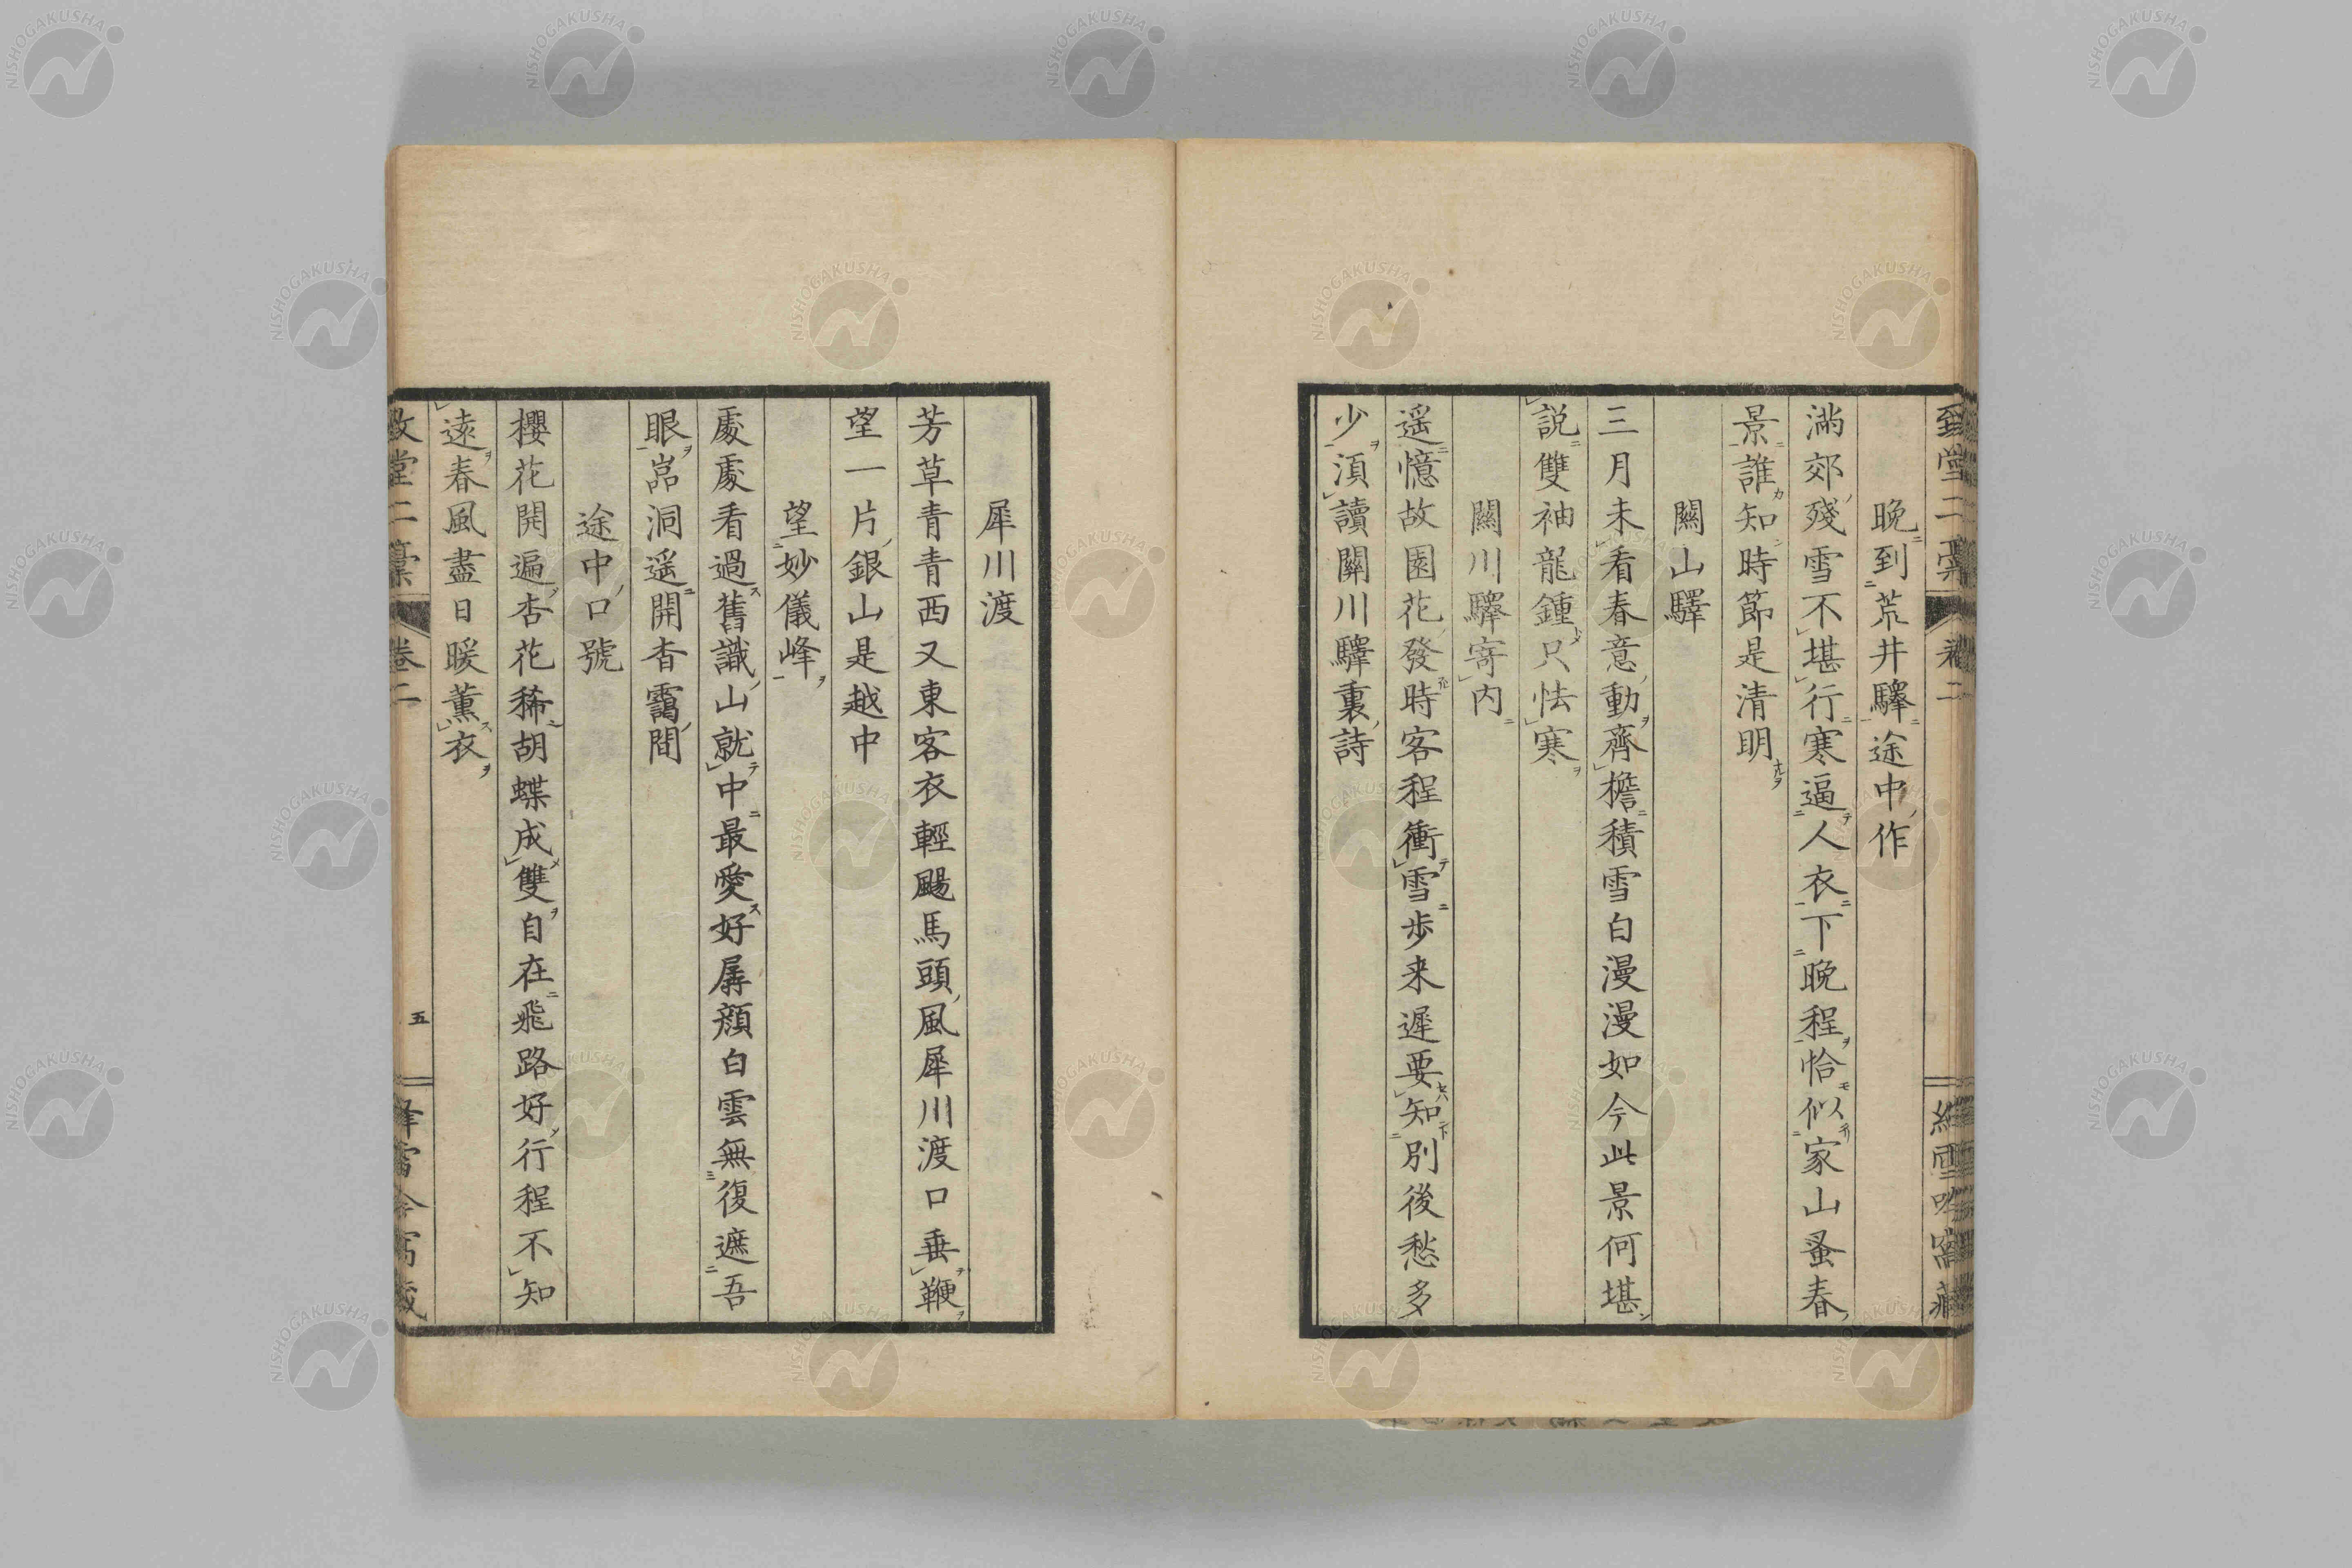 晚到荒井驛途中作
滿郊殘雪不堪行寒逼人衣下晚程恰似家山蚤春
景誰知時節是清明
關山驛
三月未看春意動齊檐積雪白漫漫如今此景何堪
説雙袖龍鍾只怯寒
關川驛寄内
遥憶故園花發時客程衝雪歩来遲要知別後愁多
少湏讀關川驛裏詩
犀川渡
芳草青青西又東客衣輕颺馬頭風犀川渡口垂鞭
望一片銀山是越中
望妙儀峰
處處看過舊識山就中最愛好孱顔白雲無復遮吾
眼嵓洞遥開杳靄間
途中口號
櫻花開遍杏花稀胡蝶成雙自在飛路好行程不知
遠春風盡日暖薫衣
卷二
五
NISHOGAKUSHA